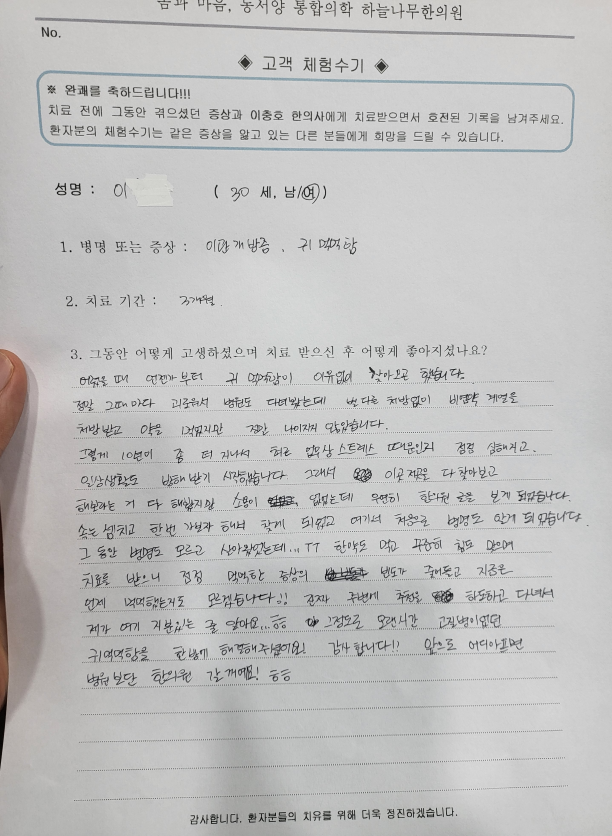 몸과 마음, 동서양 통합의학 하늘나무한의원
No.
◈ 고객 체험수기 ◈
※ 완쾌를 축하드립니다!!!
치료 전에 그동안 겪으셨던 증상과 이충호 한의사에게 치료받으면서 호전된 기록을 남겨주세요.
환자분의 체험수기는 같은 증상을 앓고 있는 다른 분들에게 희망을 드릴 수 있습니다.
성명 : 이 ( 30 세, 남/여 )
1. 병명 또는 증상 : 이관개방증, 귀 먹먹함
2. 치료 기간 : 3개월.
3. 그동안 어떻게 고생하셨으며 치료 받으신 후 어떻게 좋아지셨나요?
어렸을 때 언젠가부터 귀 먹먹함이 이유없이 찾아오곤 했습니다.
정말 그때마다 괴로워서 병원도 다녀봤는데 별 다른 처방없이 비염약 계열을
처방받고 약을 먹었지만 정말 나아지지 않았습니다.
그렇게 10년이 좀 더 지나서 회사 업무상 스트레스 때문인지 점점 심해지고.
일상생활도 방해받기 시작했습니다. 그래서 이곳저곳을 다 찾아보고
해보라는 거 다 해봤지만 소용이 없었는데 우연히 한의원 글을 보게 되었습니다.
속는 셈치고 한번 가보자 해서 찾게 되었고 여기서 처음으로 병명도 알게 되었습니다.
그 동안 병명도 모르고 살아왔었는데...TT 한약도 먹고 꾸준히 침도 맞으며
치료를 받으니 점점 먹먹한 증상의 빈도가 줄어들고 지금은
언제 먹먹했는지도 모르겠습니다!! 진짜 주변에 추천을 하도하고 다녀서
제가 여기 지분있는 줄 알아요...ㅎㅎ 그정도로 오랜시간 고질병이었던
귀먹먹함을 한방에 해결해주셨어요! 감사합니다!! 앞으로 어디아프면
병원보단 한의원 갈게요! ㅎㅎ
감사합니다. 환자분들의 치유를 위해 더욱 정진하겠습니다.